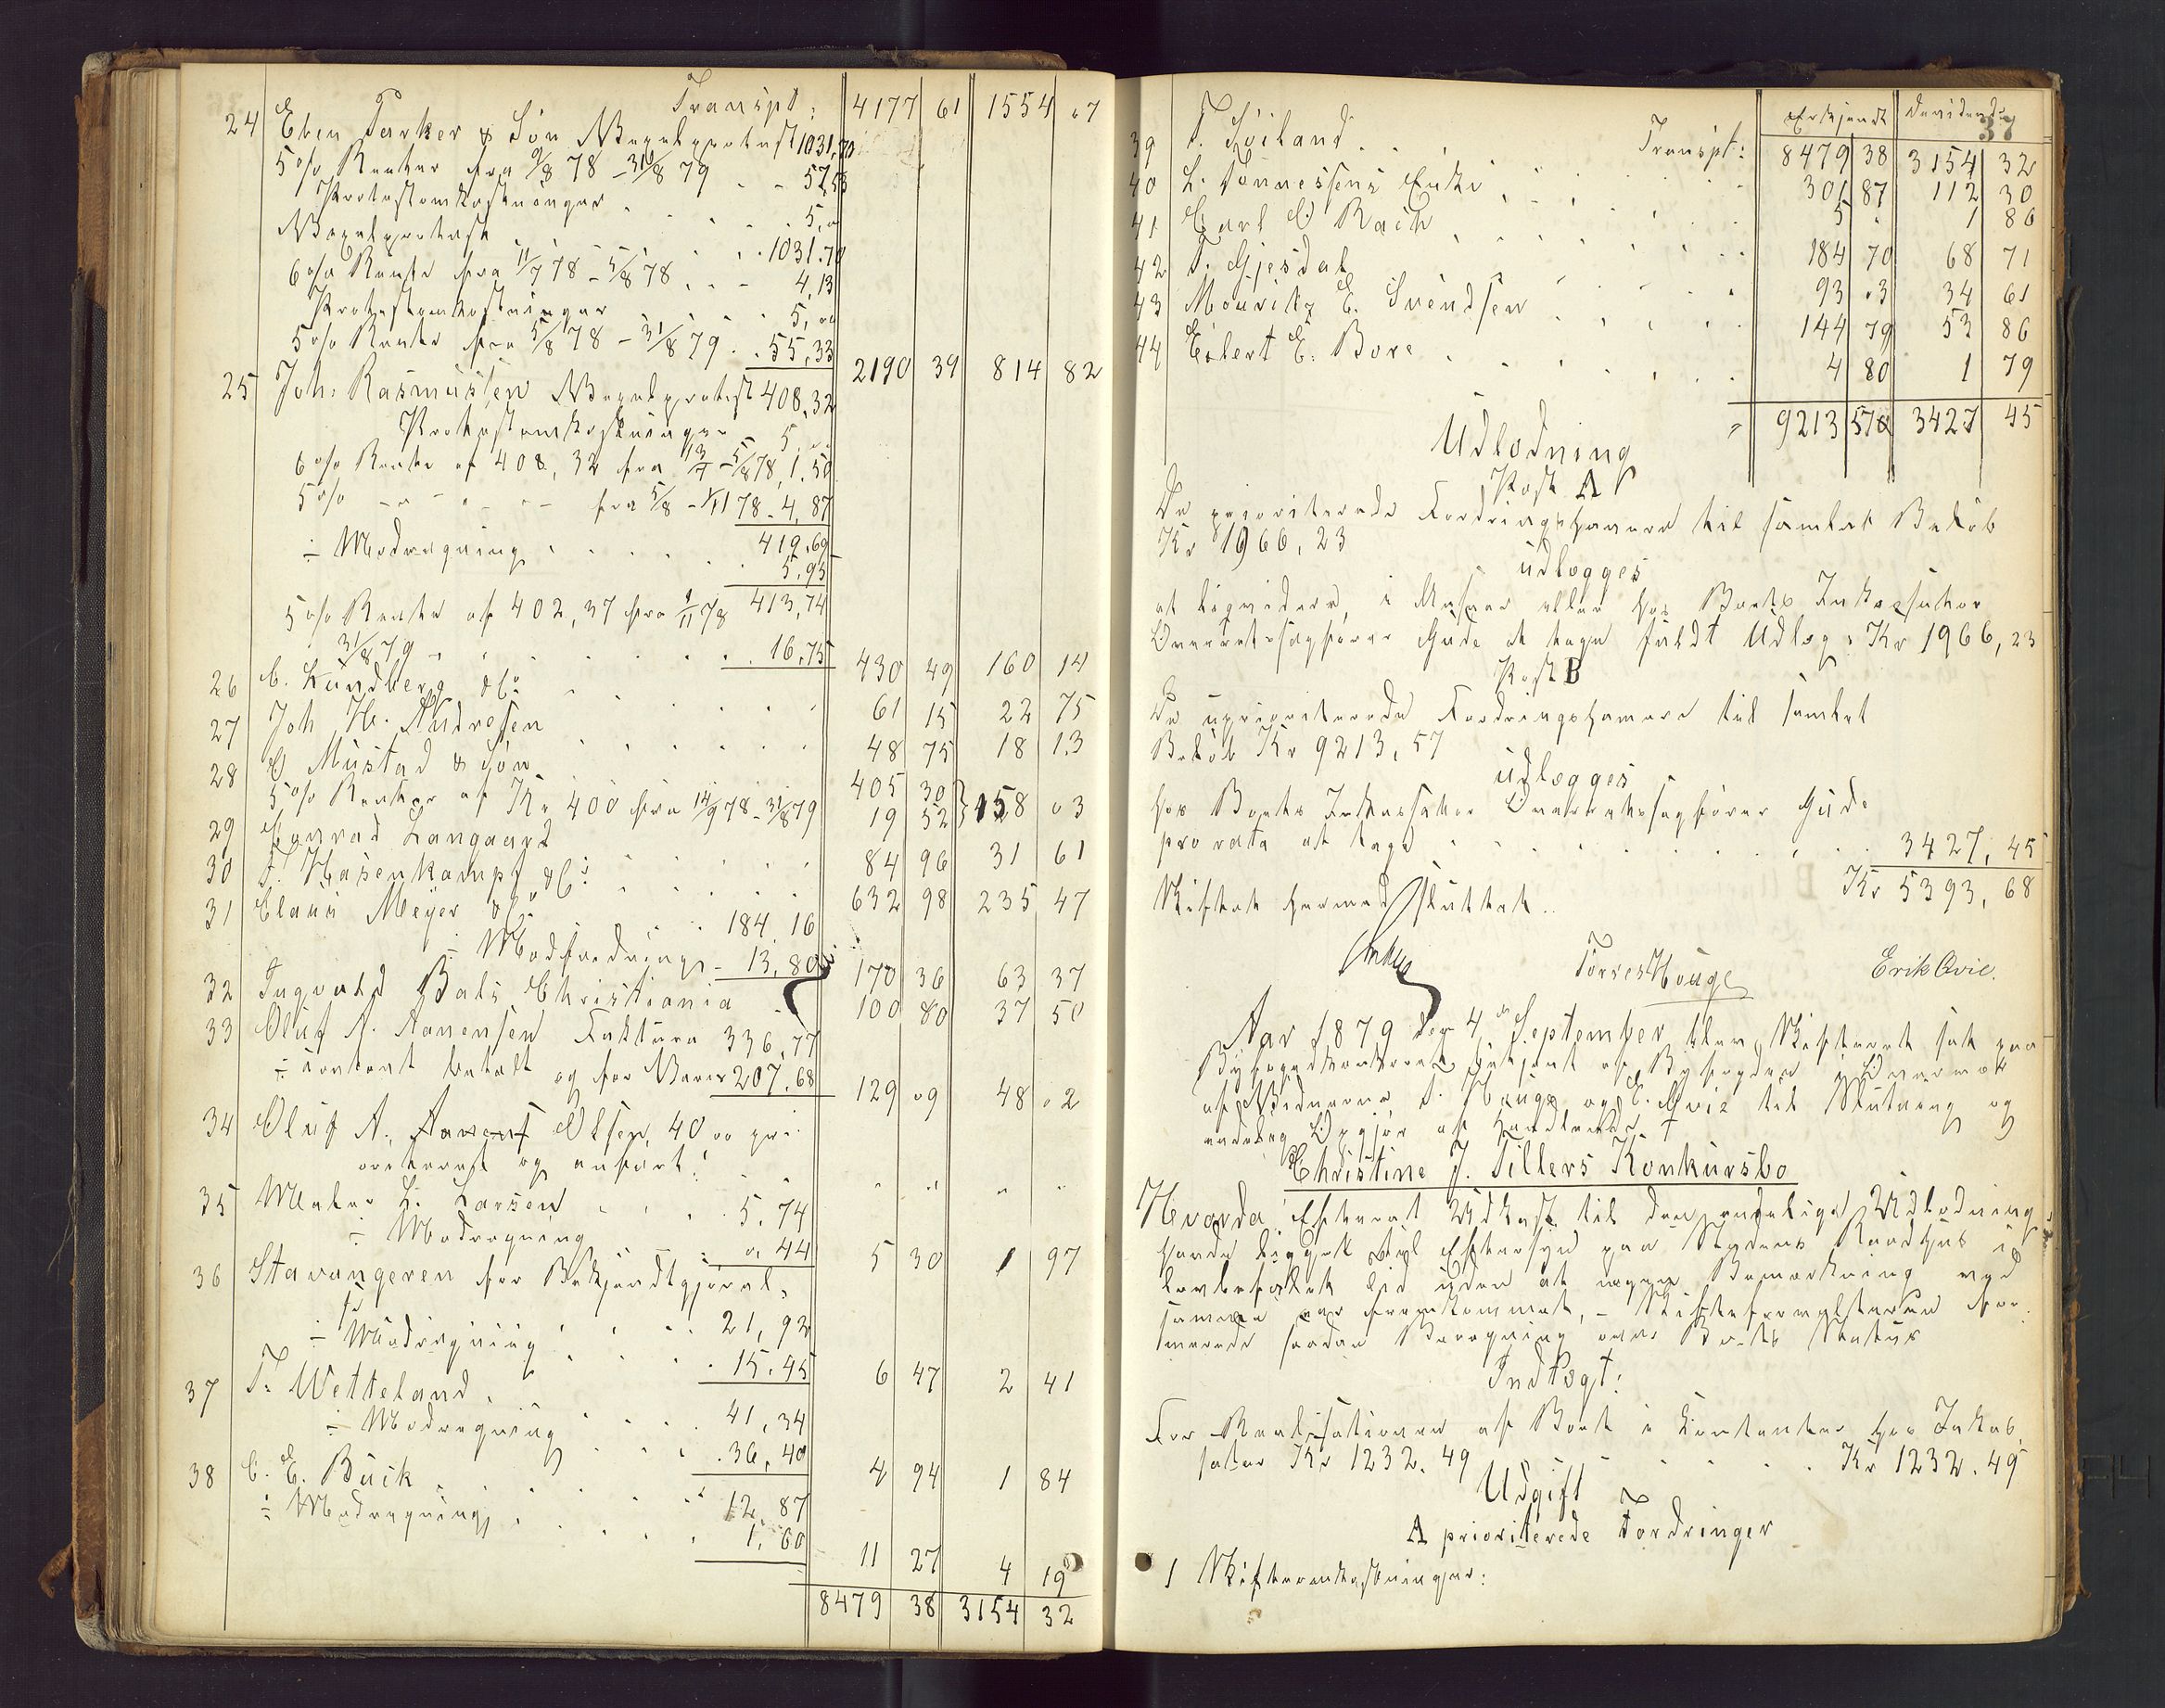 Transpt: 4177 61 1554 07
24 Eben Parker & Søn Vexelprotest 1031,70
5% Renter fra 9/8 78 - 31/8 79 - - 57,53
Protestomkostninger . . . 5,00
Vexelprotest . . . 1031.70
6% Rente fra 11/7 78 - 5/8 78 . . - 4,13
Protestomkostninger . . 5,00
5% Rente fra 5/8 78 - 31/8 79 . . 55,33 2190 39 814 82
25 Joh: Rasmussen Vexelprotest 408,32
Protestomkostninger 5,00
6% Rente af 408,32 fra 13/7 - 5/8 78, 1.50
5% - " - " - - fra 5/8 - 1/11 78 - 4,87
419.69
÷ Modregning . . . . . 5.95
413,74
5% Rente af 402,37 fra 1/11 78
31/8 79 - . . . . . 16,75 430 49 160 14
26 C. Lundberg & Co . . . . . 61 15 22 75
27 Joh H. Andresen . . . . . 48 75 18 13
28 O Mustad & Søn . . . . 405 30
5% Renter af Kr 400 fra 14/9 78 - 31/8 79 19 52 } 158 03
29 Conrad Langaard . . . . . 84 96 31 61
30 F. Hasenkampf & Co: . . . . 632 98 235 47
31 Claus Meyer & Co . . . 184.16
÷ Modfordring - 13,80 170 36 63 37
32 Ingvald Bals Christiania . 100 80 37 50
33 Oluf A. Aanensen Faktura 336,77
÷ contant betalt og for Varer 207.68 129 09 48 02
34 Oluf A. Olsen, 40,00 pri
oriteret og anført: . . " " " "
35 Maler L. Larsen . . . 5.74
÷ Modregning - - . 0.44 5 30 1 97
36 Stavangeren for Bekjendtgjørel,
se . . . . 21,92
÷ Modregning . . . . 15.45 6 47 2 41
37 T. Wetteland . . . . 41,34
÷ Modregning . . . 36,40 4 94 1 84
38 C. E. Buck . . . . . 12.87
÷ Modregning . . . . 1.60 11 27 4 19
8479 38 3154 32
37
Erkjendt Dividende
Transpt: 8479 38 3154 32
39 T. Soiland . . . 301 87 112 30
40 L. Tønnessens Enke . . . 5 . 1 86
41 Carl O Rack . . . . 184 70 68 71
42 T. Gjesdal . . . . 93 03 34 61
43 Mouritz E. Svendsen . . . . 144 79 53 86
44 Eilert E. Bore . . . . 4 80 1 79
9213 57 3427 45
Udlodning
Post A
De prioriterede Fordringshavere til samlet Beløb
Kr 1966,23
udlægges
at liqvidere, i Masser eller hos Boets Inkassator
Overretssagfører Gude at tage fuldt Udlæg: Kr 1966,23
Post B
De uprioriterede Fordringshavere til samlet
Beløb Kr 9213,57
udlægges
hos Boets Inkassator Overretssagfører Gude
pro rata at tage . . . . . . 3427,45
Kr 5393,68
Skiftet hermed sluttet.
Torres Houge Erik Qvie.
Aar 1879 den 4de September blev Skifteret sat paa
Byfogedkontoret betjent af Byfogden i Overvær
af Vidnerne T. Houge og E. Qvie til Slutning og
endelig Opgjør af Handlende
Christine J. Tillers Konkursbo
Hvorda Efterat Udkast til den endelige Udlodning
havde ligget til Eftersyn paa Stedens Raadhus i
lovbefalet Tid uden at nogen Bemærkning ved
samme var fremkommet, - Skifteforvalteren for
merede saadan Beregning over Boets Status
Indtægt:
For Realisationen af Boet i Contanter hos Inkas,
sator Kr 1232.49 - - - . . . Kr 1232.49
Udgift
A prioriterede Fordringer
1 Skifteomkostninger: